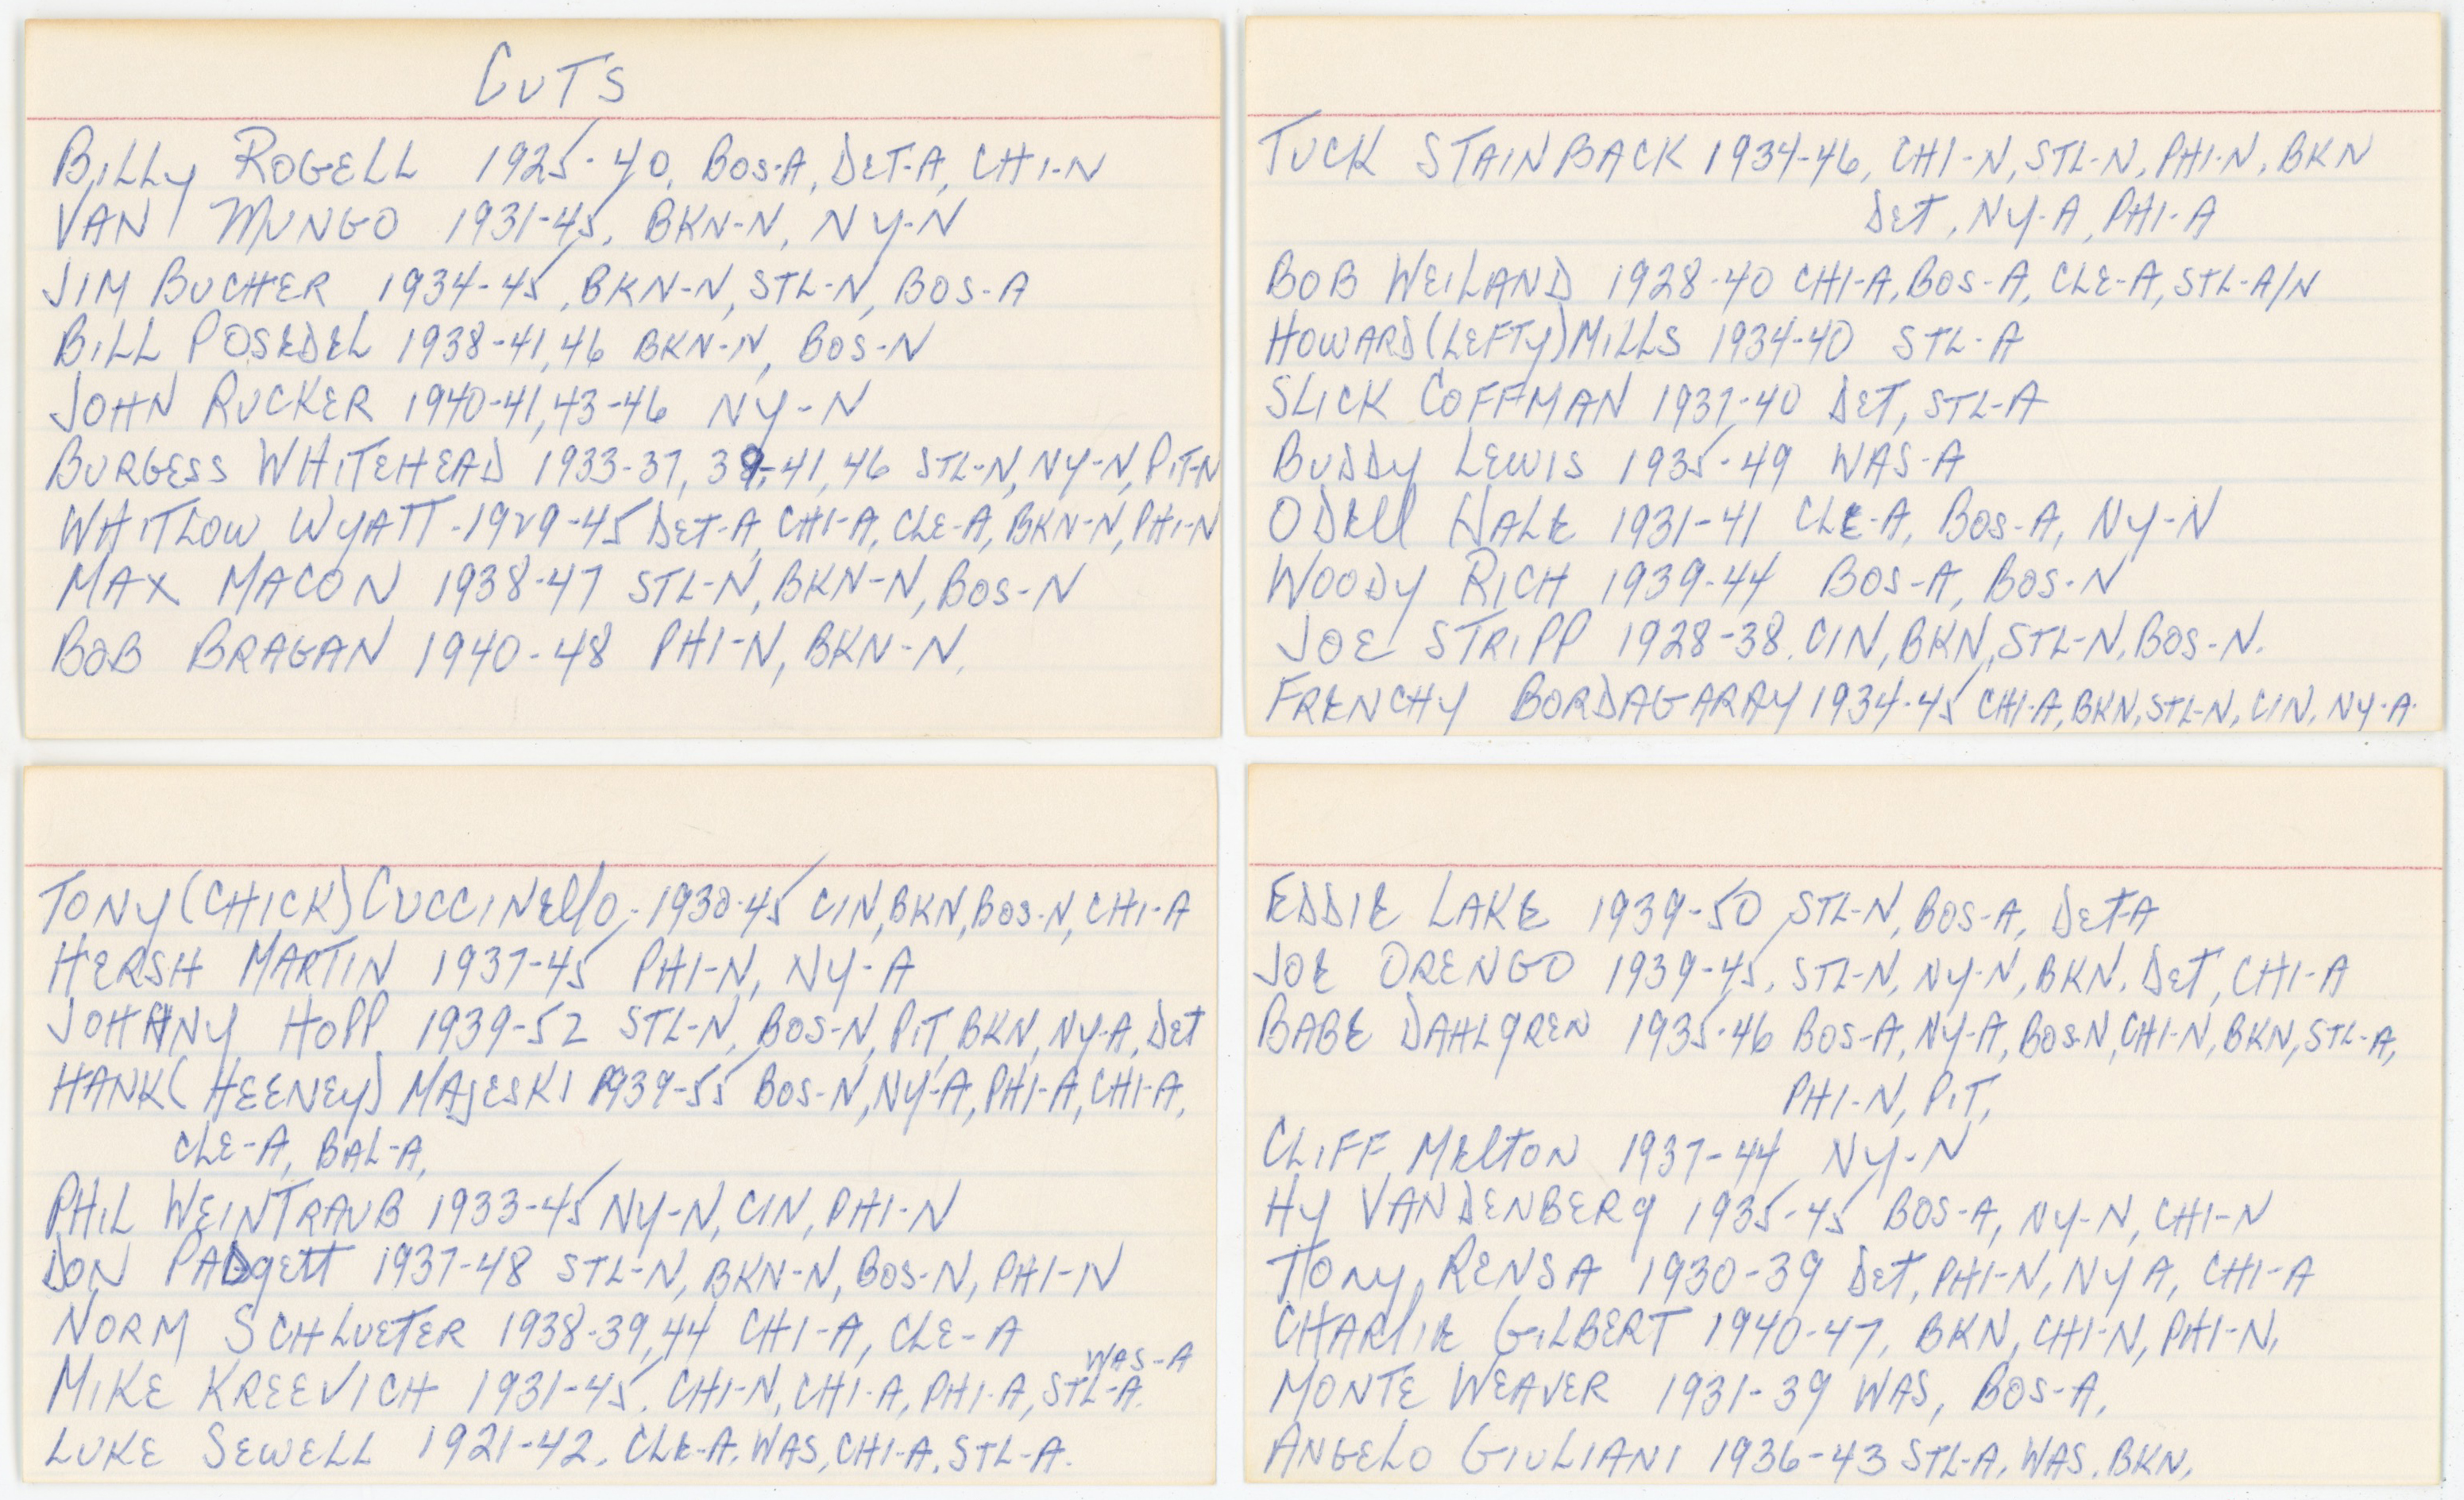 CUTS
BILLY ROGELL 1925-40, BOS-A, DET-A, CHI-N
VAN MUNGO 1931-45, BKN-N, NY-N
JIM BUCHER 1934-45, BKN-N, STL-N, BOS-A
BILL POSEDEL 1938-41, 46 BKN-N, BOS-N
JOHN RUCKER 1940-41, 43-46 NY-N
BURGESS WHITEHEAD 1933-37, 39-41, 46 STL-N, NY-N, PIT-N
WHITLOW WYATT-1929-45 DET-A, CHI-A, CLE-A, BKN-N, PHI-N
MAX MACON 1938-47 STL-N, BKN-N, BOS-N
BOB BRAGAN 1940-48 PHI-N, BKN-N.
TUCK STAINBACK 1934-46, CHI-N, STL-N, PHI-N, BKN
DET, NY-A, PHI-A
BOB WEILAND 1928-40 CHI-A, BOS-A, CLE-A, STL-A/N
HOWARD (LEFTY) MILLS 1934-40 STL-A
SLICK COFFMAN 1937-40 DET, STL-A
BUDDY LEWIS 1935-49 WAS-A
ODELL HALE 1931-41 CLE-A, BOS-A, NY-N
WOODY RICH 1939-44 BOS-A, BOS-N
JOE STRIPP 1928-38. CIN, BKN, STL-N, BOS-N.
FRENCHY BORDAGARAY 1934-45 CHI-A, BKN, STL-N, CIN, NY-A.
TONY (CHICK) CUCCINELLO-1930-45 CIN, BKN, BOS-N, CHI-A
HERSH MARTIN 1937-45 PHI-N, NY-A
JOHNNY HOPP 1939-52 STL-N, BOS-N, PIT, BKN, NY-A, DET
HANK (HEENEY) MAJESKI 1939-55 BOS-N, NY-A, PHI-A, CHI-A,
CLE-A, BAL-A,
PHIL WEINTRAUB 1933-45 NY-N, CIN, PHI-N
DON PADGETT 1937-48 STL-N, BKN-N, BOS-N, PHI-N
NORM SCHLUETER 1938-39, 44 CHI-A, CLE-A
WAS-A
MIKE KREEVICH 1931-45. CHI-N, CHI-A, PHI-A, STL-A.
LUKE SEWELL 1921-42. CLE-A, WAS, CHI-A, STL-A.
EDDIE LAKE 1939-50 STL-N, BOS-A, DET-A
JOE ORENGO 1939-45, STL-N, NY-N, BKN, DET, CHI-A
BABE DAHLGREN 1935-46 BOS-A, NY-A, BOS-N, CHI-N, BKN, STL-A,
PHI-N, PIT,
CLIFF MELTON 1937-44 NY-N
HY VANDENBERG 1935-45 BOS-A, NY-N, CHI-N
TONY RENSA 1930-39 DET, PHI-N, NY A, CHI-A
CHARLIE GILBERT 1940-47, BKN, CHI-N, PHI-N,
MONTE WEAVER 1931-39 WAS, BOS-A,
ANGELO GIULIANI 1936-43 STL-A, WAS, BKN,